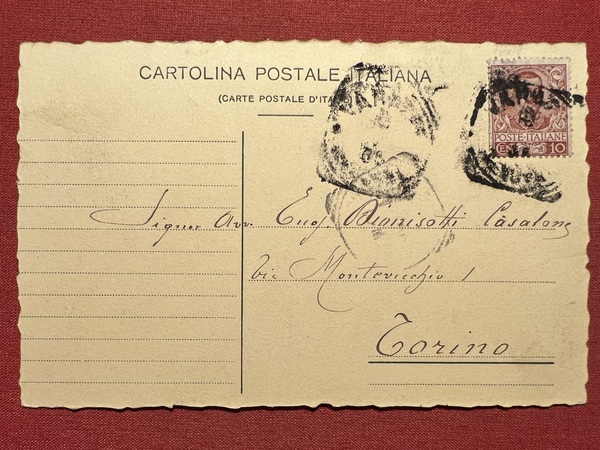 CARTOLINA POSTALE ITALIANA
(CARTE POSTALE D'ITA
POSTE·ITALIANE
10
Signor Avv. Eug. Dionisotti Casalone
Via Montevecchio 1
Torino